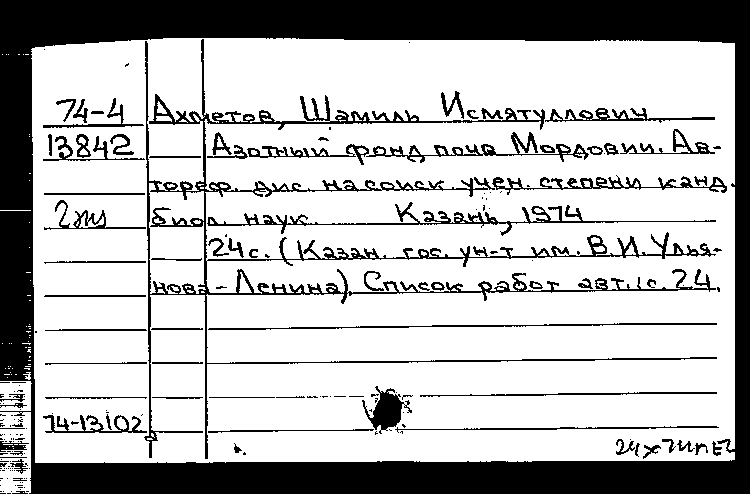 74-4 Ахметов, Шамиль Исмятуллович
13842 Азотный фонд почв Мордовии. Ав-
тореф. дис. на соиск. учен. степени канд.
2 экз биол. наук. Казань, 1974
24 с. (Казан. гос. ун-т им. В.И. Улья-
нова-Ленина). Список работ авт.: с. 24.
74-13102